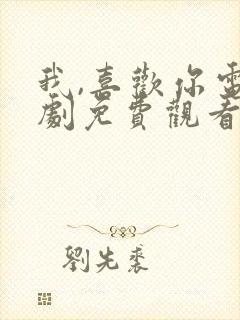 我,喜歡你電
劇免費觀看
劉先裘